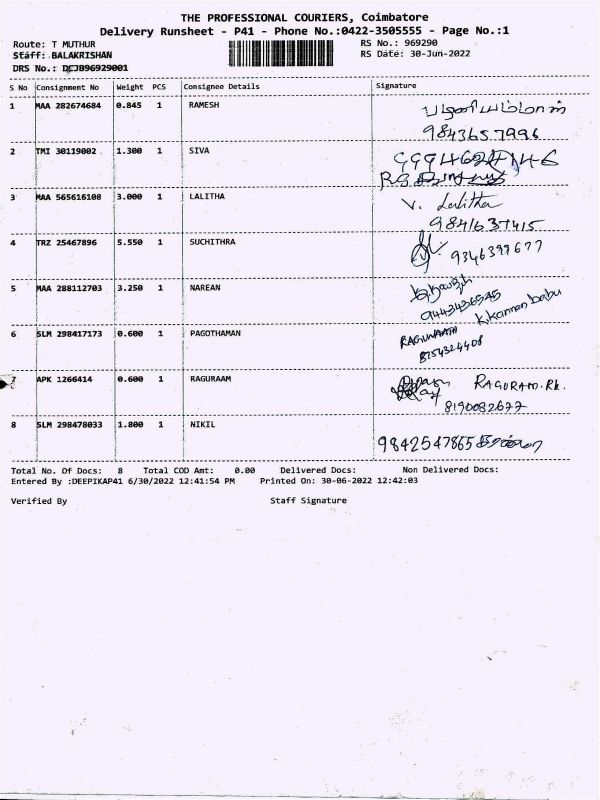 THE PROFESSIONAL COURIERS, Coimbatore
Delivery Runsheet - P41 - Phone No.:0422-3505555 - Page No.:1
Route: T MUTHUR RS No.: 969290
Staff: BALAKRISHAN RS Date: 30-Jun-2022
DRS No.: DCJB96929001
S No Consignment No Weight PCS Consignee Details Signature
1 MAA 282674684 0.845 1 RAMESH பழனியம்மாள்
9843657996
2 TMI 30119002 1.300 1 SIVA
3 MAA 565616108 3.000 1 LALITHA V. Lalitha
9841637415
4 TRZ 25467896 5.550 1 SUCHITHRA 9346399677
5 MAA 288112703 3.250 1 NAREAN
9443436545 K.Kannan babu
6 SLM 298417173 0.600 1 PAGOTHAMAN RAGUNAATH
8754324408
7 APK 1266414 0.600 1 RAGURAAM RAGURAM.RK.
8190082677
8 SLM 298478033 1.800 1 NIKIL 9842547865
Total No. Of Docs: 8 Total COD Amt: 0.00 Delivered Docs: Non Delivered Docs:
Entered By :DEEPIKAP41 6/30/2022 12:41:54 PM Printed On: 30-06-2022 12:42:03
Verified By Staff Signature